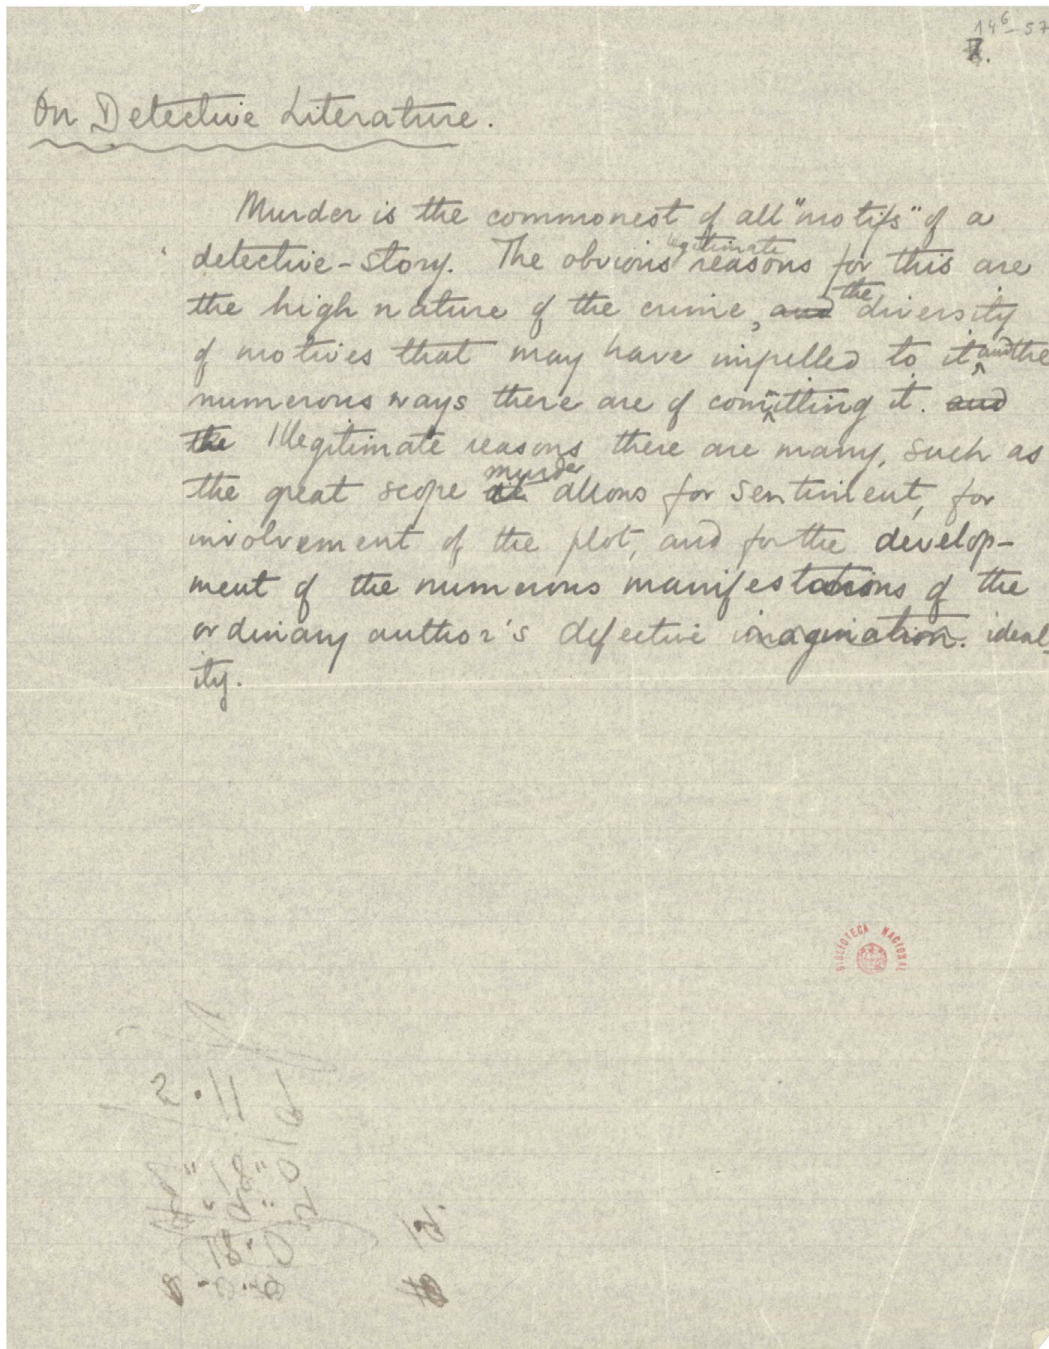 14⁶-57
7.
On Detective Literature.
Murder is the commonest of all "motifs" of a
detective-story. The obvious legitimate reasons for this are
the high nature of the crime, and the diversity
of motives that may have impelled to it and the
numerous ways there are of committing it. and
the Illegitimate reasons there are many, such as
the great scope murder allows for sentiment, for
involvement of the plot, and for the develop-
ment of the numerous manifestations of the
ordinary author's defective imagination. ideal-
ity.
BIBLIOTECA NACIONAL